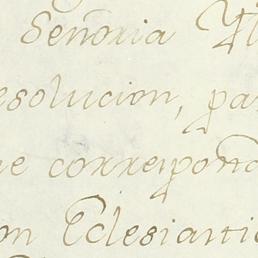 Señoria Yl
esolucion, par
ue correspond
on Eclesiastic